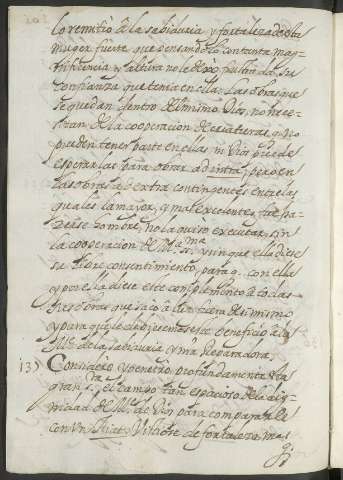 lo remitio â la sabiduria, y fortaleza desta
muger fuerte, que pensandolo con tanta mag-
nificencia y altura no le dexò frustrada su
confianza que tenia en ella. Las obras que
se quedan dentro del mismo Dios, no nece-
sitan de la cooperacion de criaturas, q. no
pueden tener parte en ellas, ni Dios puede
esperarlas para obrar ad intra; pero en
las obras ad extra contingentes, entre las
quales la mayor, y mas excelente fue ha-
cerse hombre, no la quiso executar sin
la cooperacion de Mª. SSma. y sin que ella diese
su libre consentimiento, para q. con ella
y por ella diese este complemento â todas
sus obras que sacò â luz fuera de si mismo
y para que le debiesemos este beneficio â la
Me. de la sabiduria y nra Reparadora.
13) Considere, y penetre profundamente esta
gran Sra. el campo tan espacioso de la dig-
nidad de Me. de Dios para comprarle
con un fiat. Vistiose de fortaleza mas
q.